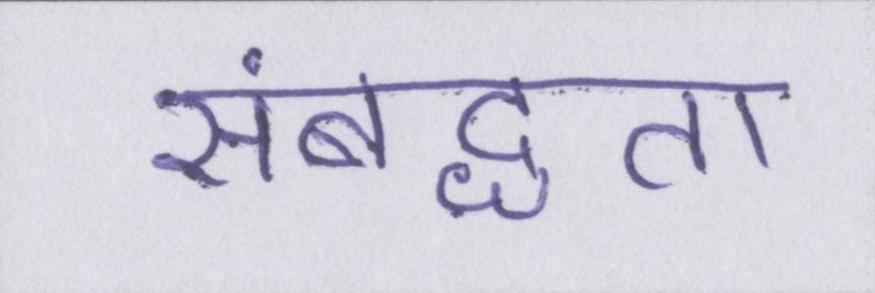 संबद्धता